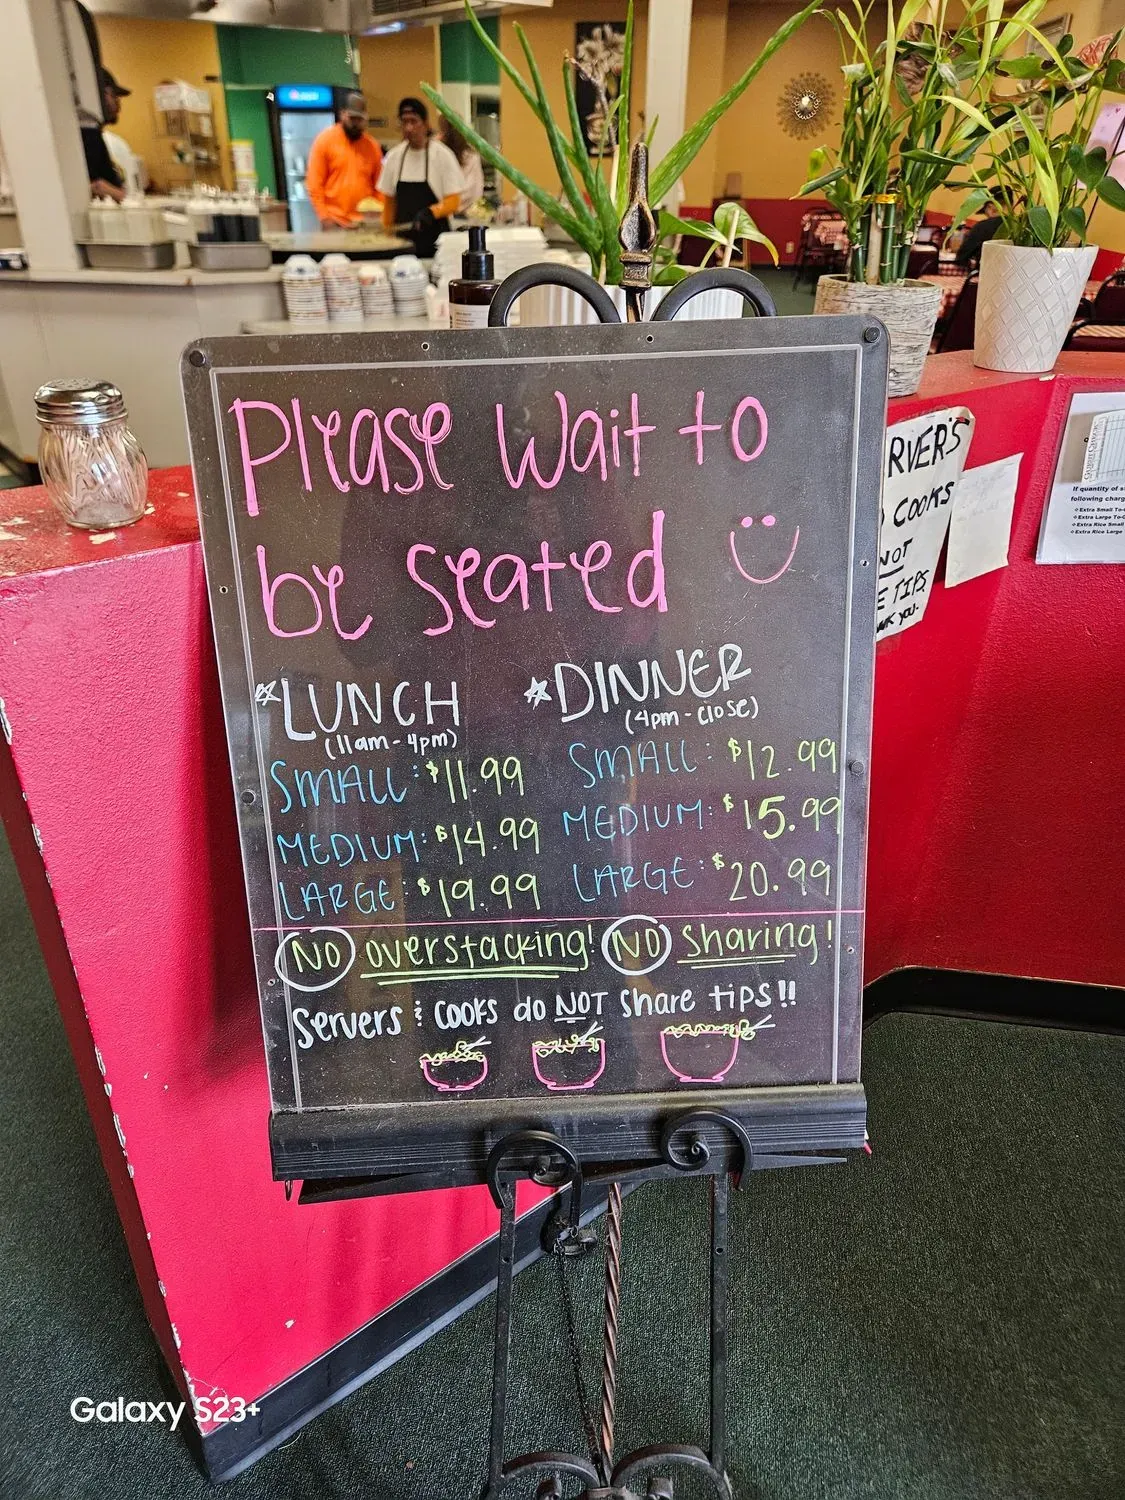 Please Wait to
be seated
*LUNCH
(11am-4pm)
SMALL: $11.99
MEDIUM: $14.99
LARGE: $19.99
*DINNER
(4pm-close)
SMALL: $12.99
MEDIUM: $15.99
LARGE: $20.99
NO overstacking! NO sharing!
Servers & COOKS do NOT share tips!!
RVER'S
COOKS
NOT
E TIPS
If quantity of s
following charg
Extra Small To-
Extra Large To-
Extra Rice Small
Extra Rice Large
Galaxy S23+